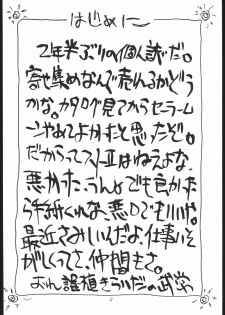 はじめに
2年半ぶりの個人誌だ。
寄せ集めなんで売れるかどう
かな。カタログ見てからセーラームー
ンやめてよかったと思ったぞ。
だからってストIIはねえよな。
悪かった。うんでも良かった
ら手紙くれな、悪口でもいい。
最近さみしいんだよ、仕事いそ
がしくってさ、仲間もさ。